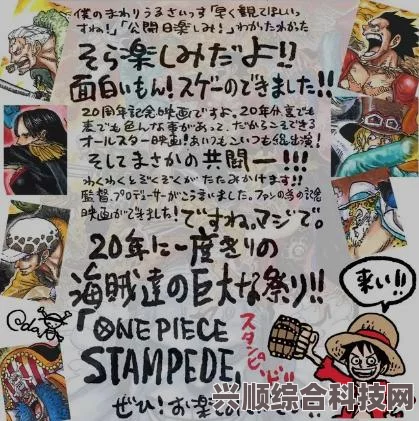 僕のまわりうるさいっす「早く観てほしいっ
すね!」「公開日楽しみ!」わかったわかった
そら楽しみだよ!!
面白いもん!スゲーのできました!!
20周年記念映画ですよ。20年分裏でも
表でも色んな事があって、だからこそできる
オールスター映画!あいつもこいつも総出演!
そしてまさかの共闘ー!!!
わくわくとぞくぞくがたたみかけます!!
監督、プロデューサーがこう言いました。ファンの為の記念
映画ができました!ですね。マジで。
20年に一度きりの
海賊達の巨大な祭り!!
「ONE PIECE
STAMPEDE」
スタンピード!!
ぜひ!お楽
来い!!
Oda
兴顺综合科技网